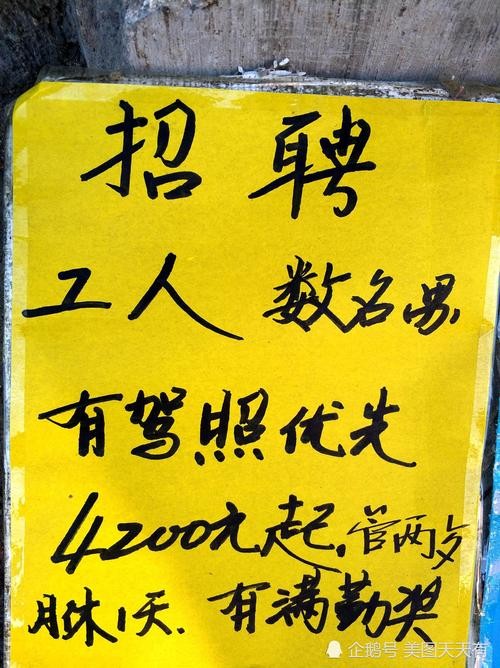 招聘
工人 数名男
有驾照优先
4200元起,管两文
月休1天.有满勤奖
企鹅号 美图天天有